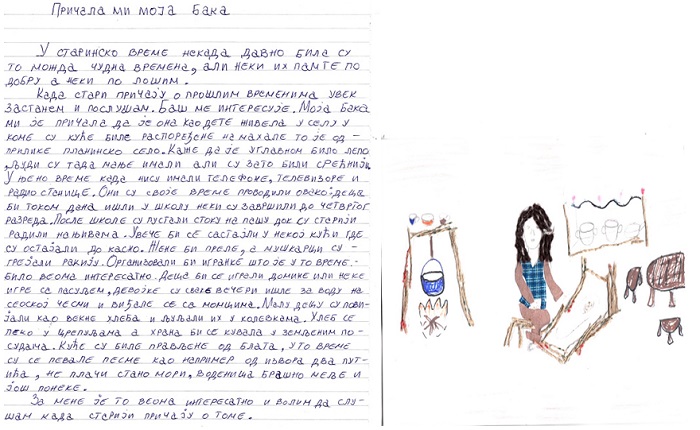 Причала ми моја бака
У старинско време некада давно била су
то можда чудна времена, али неки их памте по
добру а неки по лошим.
Када стари причају о прошлим временима увек
застанем и послушам. Баш ме интересује. Моја бака
ми је причала да је она као дете живела у селу у
коме су куће биле распоређене на махале то је од-
прилике планинско село. Каже да је углавном било лепо,
људи су тада мање имали али су зато били срећнији.
У њено време када нису имали телефоне, телевизоре и
радио станице. Они су своје време проводили овако: деца
би током дана ишли у школу неки су завршили до четвртог
разреда. После школе су пустали стоку на пашу док су старији
радили на њивама. Увече би се састајли у некој кући где
су остајали до касно. Жене би преле, а мушкарци су
грејали ракију. Организовали би игранке што је у то време
било веома интересатно. Деца би се играли домине или неке
игре са пасуљем, девојке су сваке вечери ишле за воду на
сеоској чесми и виђале се са момцима. Малу децу су пови-
јали као векне хлеба и љуљали их у колевкама. Хлеб се
пекo у црепуљама а храна би се кувала у земљеним по-
судама. Куће су биле прављене од блата, у то време
су се певале песме као например од извора два пут-
ића, не плачи стано мори, воденица брашно меље и
још понеке.
За мене је то веома интересатно и волим да слу-
шам када старији причају о томе.